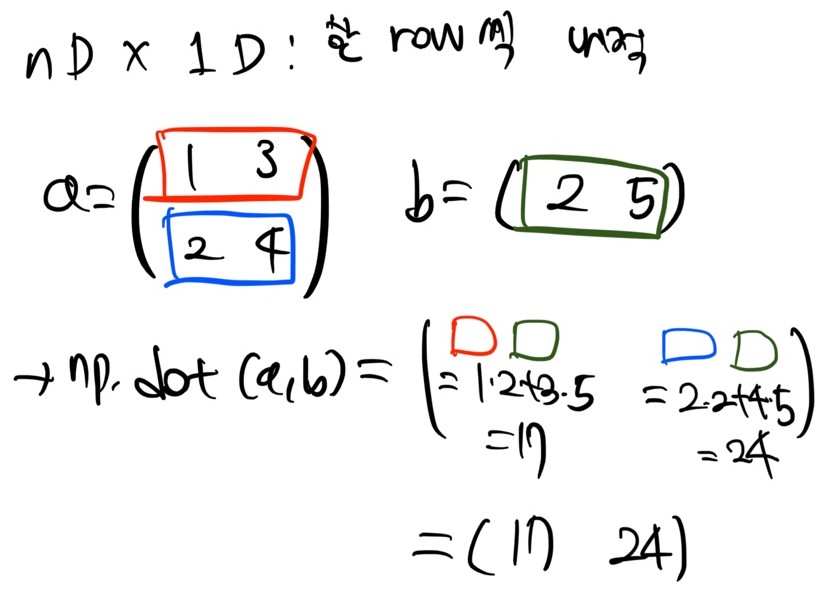 nD × 1D : 각 row 씩 내적
a = ( 1 3
2 4 )
b = ( 2 5 )
→ np.dot (a,b) = ( = 1·2+3·5 = 2·2+4·5 )
= 17 = 24
= ( 17 24 )